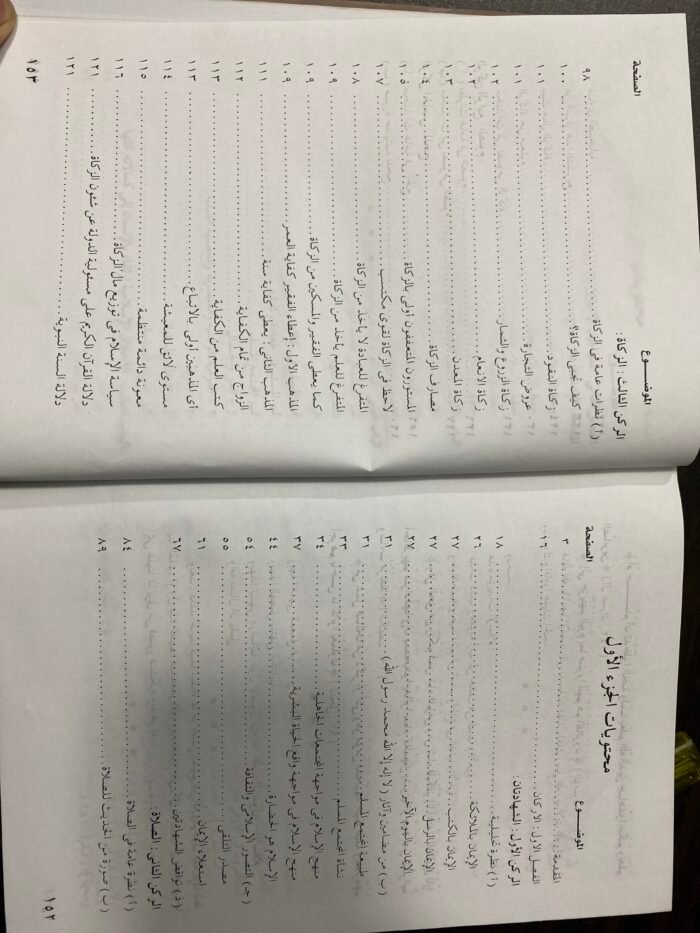 محتويات الجزء الأول
الموضوع الصفحة
المقدمة ٣
الفصل الاول: الاركان ١٦
الركن الأول: الشهادتان
(أ) نظرة تحليلية ١٨
الإيمان بالملائكة ٢٦
الإيمان بالكتب ٢٧
الإيمان بالرسل ٢٧
الإيمان باليوم الآخر ٢٧
(ب) من مضامين وآثار (لا إله إلا الله محمد رسول الله) ٣١
طبيعة المجتمع المسلم ٣١
نشأة المجتمع المسلم ٣٣
منهج الإسلام فى مواجهة المجتمعات الجاهلية ٣٤
منهج الإسلام فى مواجهة واقع الحياة البشرية ٣٧
الإسلام هو الحضارة ٤٤
(جـ) التصور الإسلامى والثقافة ٥٤
مصدر التلقى ٥٥
استعلاء الإيمان ٦١
(د) نواقض الشهادتين ٦٧
الركن الثانى: الصلاة:
(أ) نظرة عامة فى الصلاة ٨٤
(ب) صورة من الحديث للصلاة ٨٩
١٥٢
الموضوع الصفحة
الركن الثالث: الزكاة:
(أ) نظرات عامة فى الزكاة ٩٨
كيف تجبى الزكاة؟ ١٠٠
زكاة النقود ١٠١
عروض التجارة ١٠١
زكاة الزروع والثمار ١٠٢
زكاة الأنعام ١٠٣
زكاة المعدن ١٠٣
مصارف الزكاة ١٠٤
المستورون المتعففون أولى بالزكاة ١٠٥
لاحظ فى الزكاة لقوى مكتسب ١٠٧
المتفرغ للعبادة لا يأخذ من الزكاة ١٠٨
المتفرغ للعلم يأخذ من الزكاة ١٠٩
كما يعطى الفقير والمسكين من الزكاة ١٠٩
المذهب الأول: إعطاء الفقير كفاية العمر ١٠٩
المذهب الثانى: يعطى كفاية سنة ١١١
الزواج من تمام الكفاية ١١٢
كتب العلم من الكفاية ١١٣
أى المذهبين أولى بالاتباع ١١٣
مستوى لائق للمعيشة ١١٤
معونة دائمة منتظمة ١١٥
سياسة الإسلام فى توزيع مال الزكاة ١١٦
دلالة القرآن الكريم على مسئولية الدولة عن شئون الزكاة ١٢١
دلالة السنة النبوية ١٢١
١٥٣